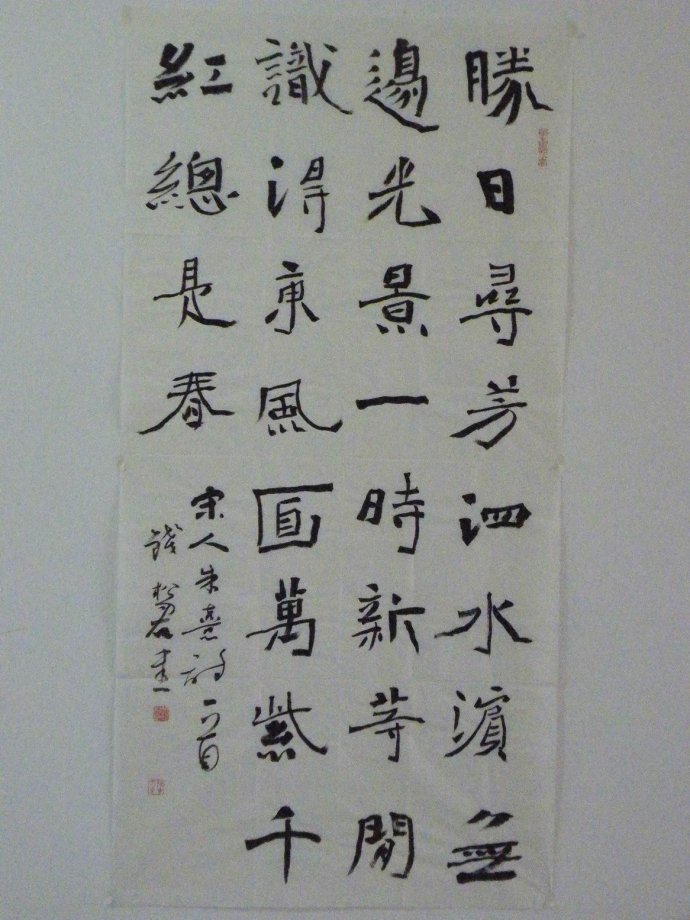 勝日尋芳泗水濱無
邊光景一時新等閒
識得東風面萬紫千
紅總是春
宋人朱熹詩一首
錢松書